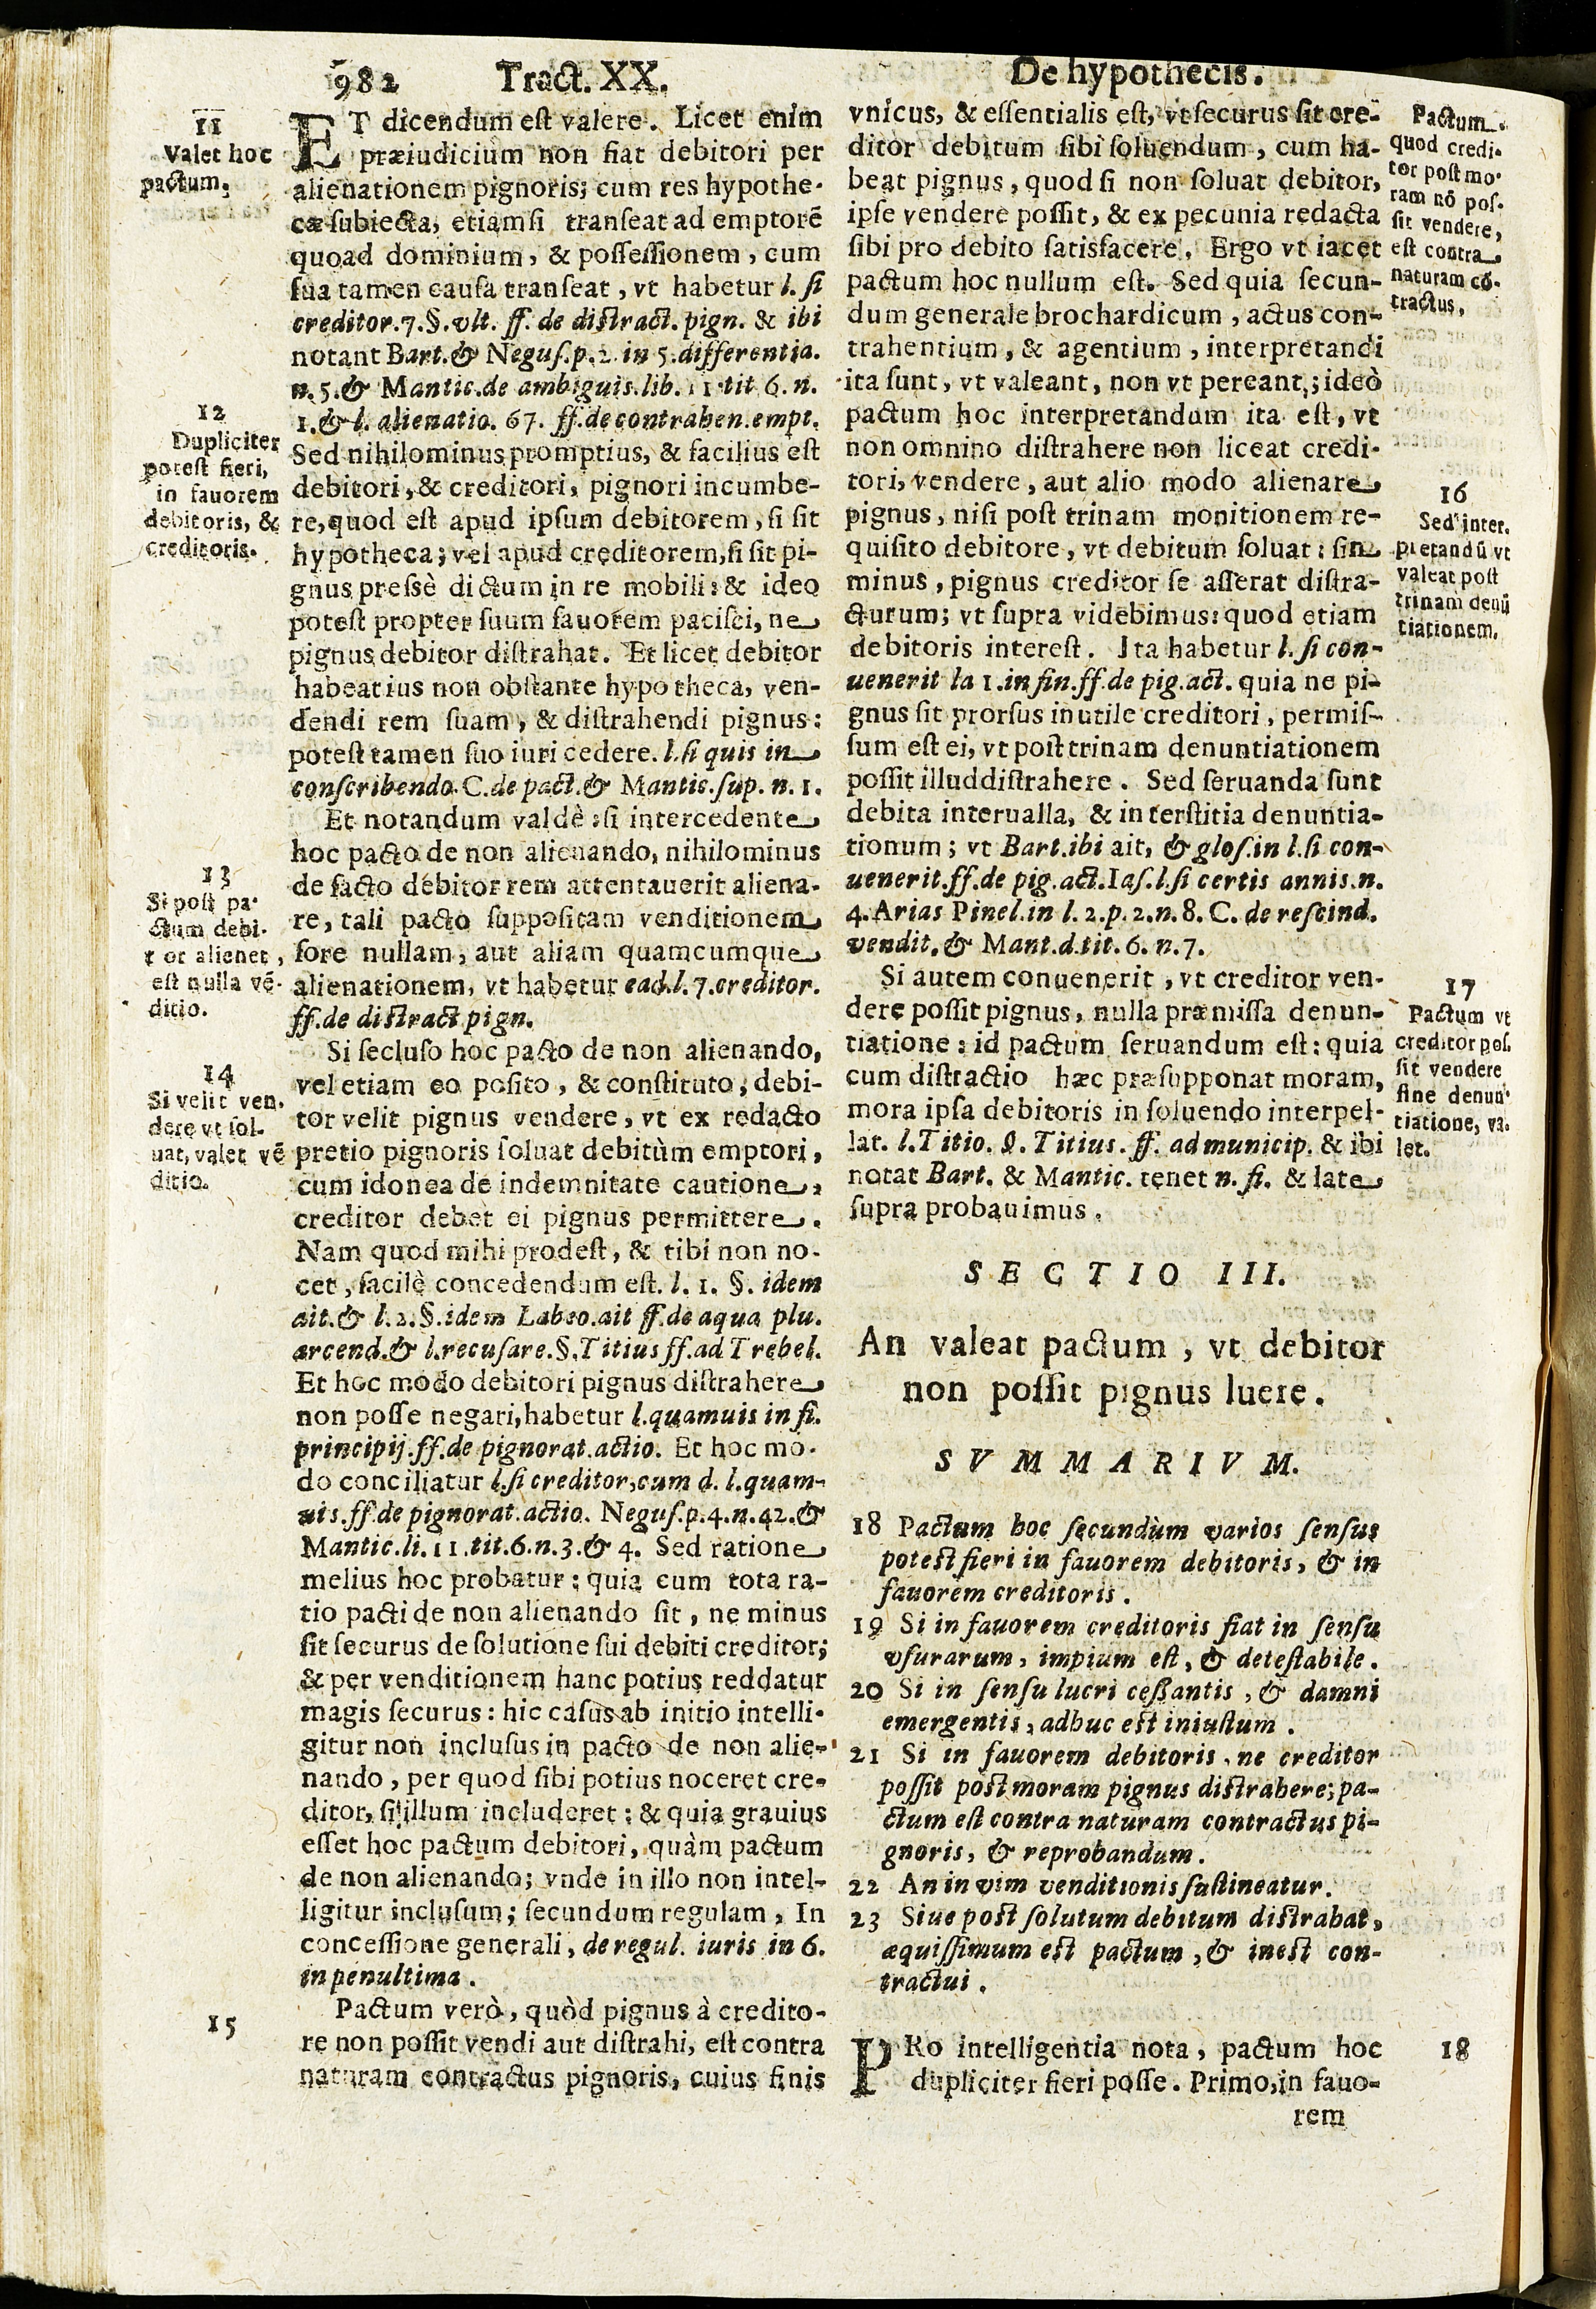 982 Tract. XX. De hypothecis.
11
Valet hoc
pactum.
ET dicendum est valere. Licet enim
præiudicium non fiat debitori per
alienationem pignoris; cum res hypothe-
cæ subiecta, etiamsi transeat ad emptorẽ
quoad dominium, & possessionem, cum
sua tamen causa transeat, vt habetur l. si
creditor. 7. §. vlt. ff. de distract. pign. & ibi
notant Bart. & Negus. p. 2. in 5. differentia.
n. 5. & Mantic. de ambiguis. lib. 11 tit 6. n.
1. & l. alienatio. 67. ff. de contrahen. empt.
12
Dupliciter
potest fieri,
in fauorem
debitoris, &
creditoris.
Sed nihilominus promptius, & facilius est
debitori, & creditori, pignori incumbe-
re, quod est apud ipsum debitorem, si sit
hypotheca; vel apud creditorem, si sit pi-
gnus pressè dictum in re mobili: & ideo
potest propter suum fauorem pacisci, ne
pignus debitor distrahat. Et licet debitor
habeat ius non obstante hypotheca, ven-
dendi rem suam, & distrahendi pignus:
potest tamen suo iuri cedere. l. si quis in
conscribendo. C. de pact. & Mantic. sup. n. 1.
Et notandum valdè: si intercedente
hoc pacto de non alienando, nihilominus
13
Si post pa-
ctum debi-
tor alienet,
est nulla vẽ-
ditio.
de facto debitor rem attentauerit aliena-
re, tali pacto suppositam venditionem
fore nullam, aut aliam quamcumque
alienationem, vt habetur ead. l. 7. creditor.
ff. de distract pign.
14
Si velit ven-
dere vt sol-
uat, valet vẽ
ditio.
Si secluso hoc pacto de non alienando,
vel etiam eo posito, & constituto, debi-
tor velit pignus vendere, vt ex redacto
pretio pignoris soluat debitùm emptori,
cum idonea de indemnitate cautione,
creditor debet ei pignus permittere.
Nam quod mihi prodest, & tibi non no-
cet, facilè concedendum est. l. 1. §. idem
ait. & l. 2. §. idem Labeo. ait ff. de aqua plu.
arcend. & l. recusare. §. Titius ff. ad Trebel.
Et hoc modo debitori pignus distrahere
non posse negari, habetur l. quamuis in fi.
principij. ff. de pignorat. actio. Et hoc mo-
do conciliatur l. si creditor, cum d. l. quam-
uis. ff. de pignorat. actio. Negus. p. 4. n. 42. &
Mantic. li. 11. tit. 6. n. 3. & 4. Sed ratione
melius hoc probatur: quia cum tota ra-
tio pacti de non alienando sit, ne minus
sit securus de solutione sui debiti creditor;
& per venditionem hanc potius reddatur
magis securus: hic casus ab initio intelli-
gitur non inclusus in pacto de non alie-
nando, per quod sibi potius noceret cre-
ditor, si illum includeret: & quia grauius
esset hoc pactum debitori, quàm pactum
de non alienando; vnde in illo non intel-
ligitur inclusum; secundum regulam, In
concessione generali, de regul. iuris in 6.
in penultima.
15
Pactum verò, quòd pignus à credito-
re non possit vendi aut distrahi, est contra
naturam contractus pignoris, cuius finis
vnicus, & essentialis est, vt securus sit cre-
ditor debitum sibi soluendum, cum ha-
beat pignus, quod si non soluat debitor,
ipse vendere possit, & ex pecunia redacta
sibi pro debito satisfacere. Ergo vt iacet
pactum hoc nullum est. Sed quia secun-
dum generale brochardicum, actus con-
trahentium, & agentium, interpretandi
ita sunt, vt valeant, non vt pereant; ideò
pactum hoc interpretandum ita est, vt
non omnino distrahere non liceat credi-
tori, vendere, aut alio modo alienare
pignus, nisi post trinam monitionem re-
quisito debitore, vt debitum soluat: sin
minus, pignus creditor se asserat distra-
cturum; vt supra videbimus: quod etiam
debitoris interest. Ita habetur l. si con-
uenerit la 1. in fin. ff. de pig. act. quia ne pi-
gnus sit prorsus inutile creditori, permis-
sum est ei, vt post trinam denuntiationem
possit illud distrahere. Sed seruanda sunt
debita interualla, & interstitia denuntia-
tionum; vt Bart. ibi ait, & glos. in l. si con-
uenerit. ff. de pig. act. Ias. l. si certis annis. n.
4. Arias Pinel. in l. 2. p. 2. n. 8. C. de rescind.
vendit. & Mant. d. tit. 6. n. 7.
Pactum
quod credi-
tor post mo-
ram nõ pos-
sit vendere,
est contra
naturam cõ-
tractus.
16
Sed inter-
pretandũ vt
valeat post
trinam denũ
tiationem.
Si autem conuenerit, vt creditor ven-
dere possit pignus, nulla præmissa denun-
tiatione: id pactum seruandum est: quia
cum distractio hæc præsupponat moram,
mora ipsa debitoris in soluendo interpel-
lat. l. Titio. §. Titius. ff. ad municip. & ibi
notat Bart. & Mantic. tenet n. fi. & late
supra probauimus.
17
Pactum vt
creditor pos-
sit vendere
sine denun-
tiatione, va-
let.
SECTIO III.
An valeat pactum, vt debitor
non possit pignus luere.
SVMMARIVM.
18 Pactum hoc secundùm varios sensus
potest fieri in fauorem debitoris, & in
fauorem creditoris.
19 Si in fauorem creditoris fiat in sensu
vsurarum, impium est, & detestabile.
20 Si in sensu lucri cessantis, & damni
emergentis, adhuc est iniustum.
21 Si in fauorem debitoris, ne creditor
possit post moram pignus distrahere; pa-
ctum est contra naturam contractus pi-
gnoris, & reprobandum.
22 An in vim venditionis sustineatur.
23 Siue post solutum debitum distrahat,
æquissimum est pactum, & inest con-
tractui.
PRo intelligentia nota, pactum hoc
dupliciter fieri posse. Primo, in fauo-
18
rem